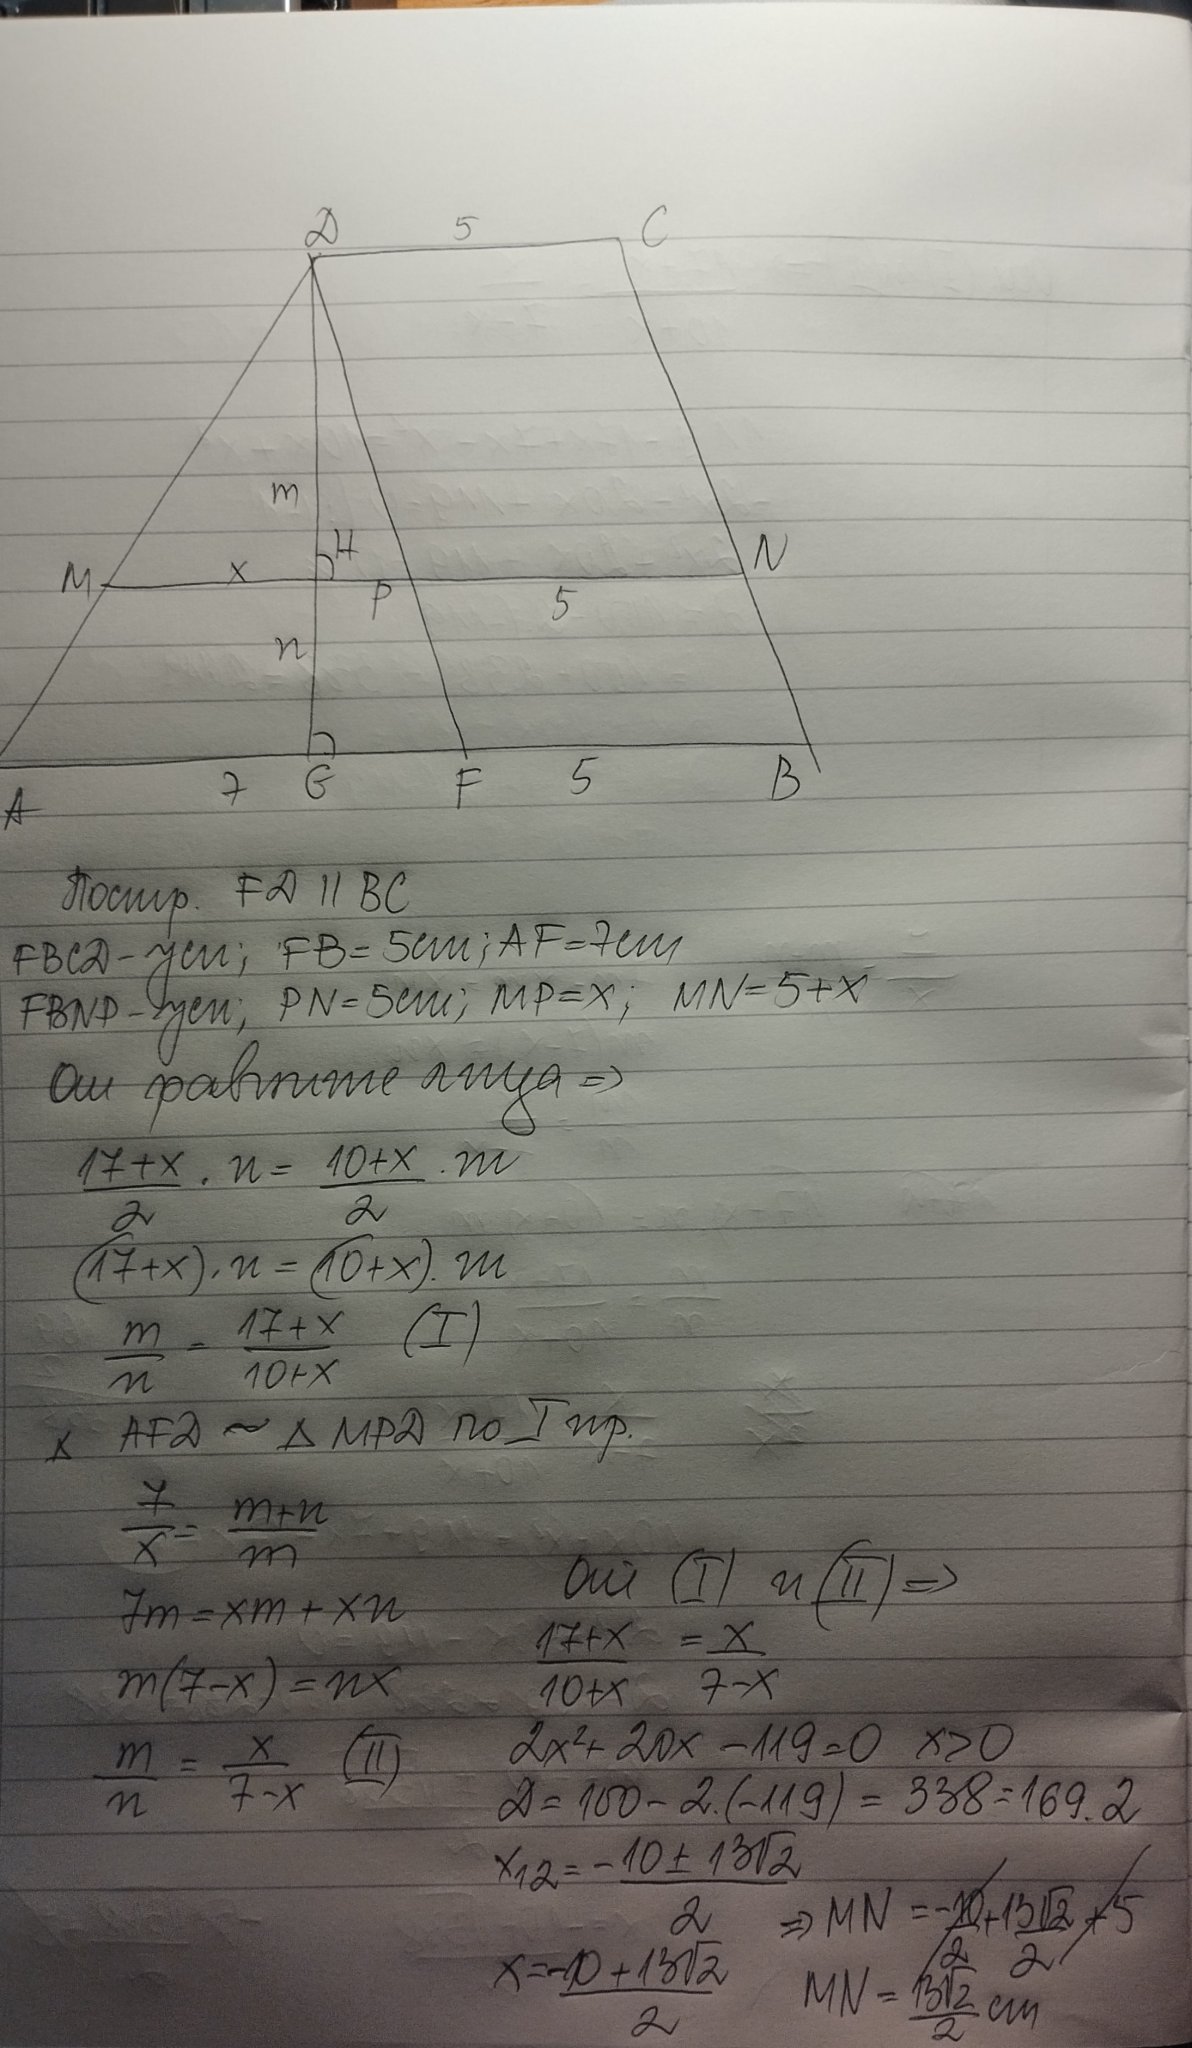 D 5 C
m
H
M x P 5 N
n
A 7 G F 5 B
Постр. FD || BC
FBCD - усп; FB = 5cm; AF = 7cm
FBNP - усп; PN = 5cm; MP = x; MN = 5 + x
От равните лица =>
17+x/2 . n = 10+x/2 . m
(17+x).n = (10+x).m
m/n = 17+x/10+x (I)
△ AFD ~ △ MPD по I пр.
7/x = m+n/m
7m = xm + xn
m(7-x) = nx
m/n = x/7-x (II)
От (I) и (II) =>
17+x/10+x = x/7-x
2x² + 20x - 119 = 0 x>0
D = 100 - 2.(-119) = 338 = 169.2
x12 = -10 ± 13√2/2
x = -10 + 13√2/2
=> MN = -10/2 + 13√2/2 + 5
MN = 13√2/2 cm